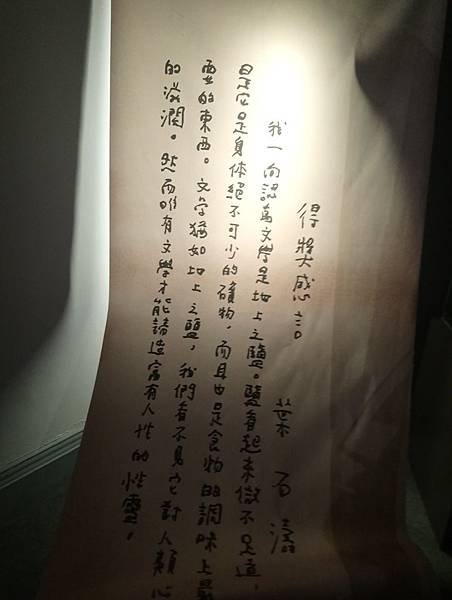 得獎感言
葉石濤
我一向認為文學是地上之鹽。鹽看起來微不足道，
是它是身体絕不可少的礦物，而且也是食物的調味上最
要的東西。文学猶如地上之鹽，我們看不見它對人類心
的滋潤。然而唯有文學才能鑄造富有人性的性靈。